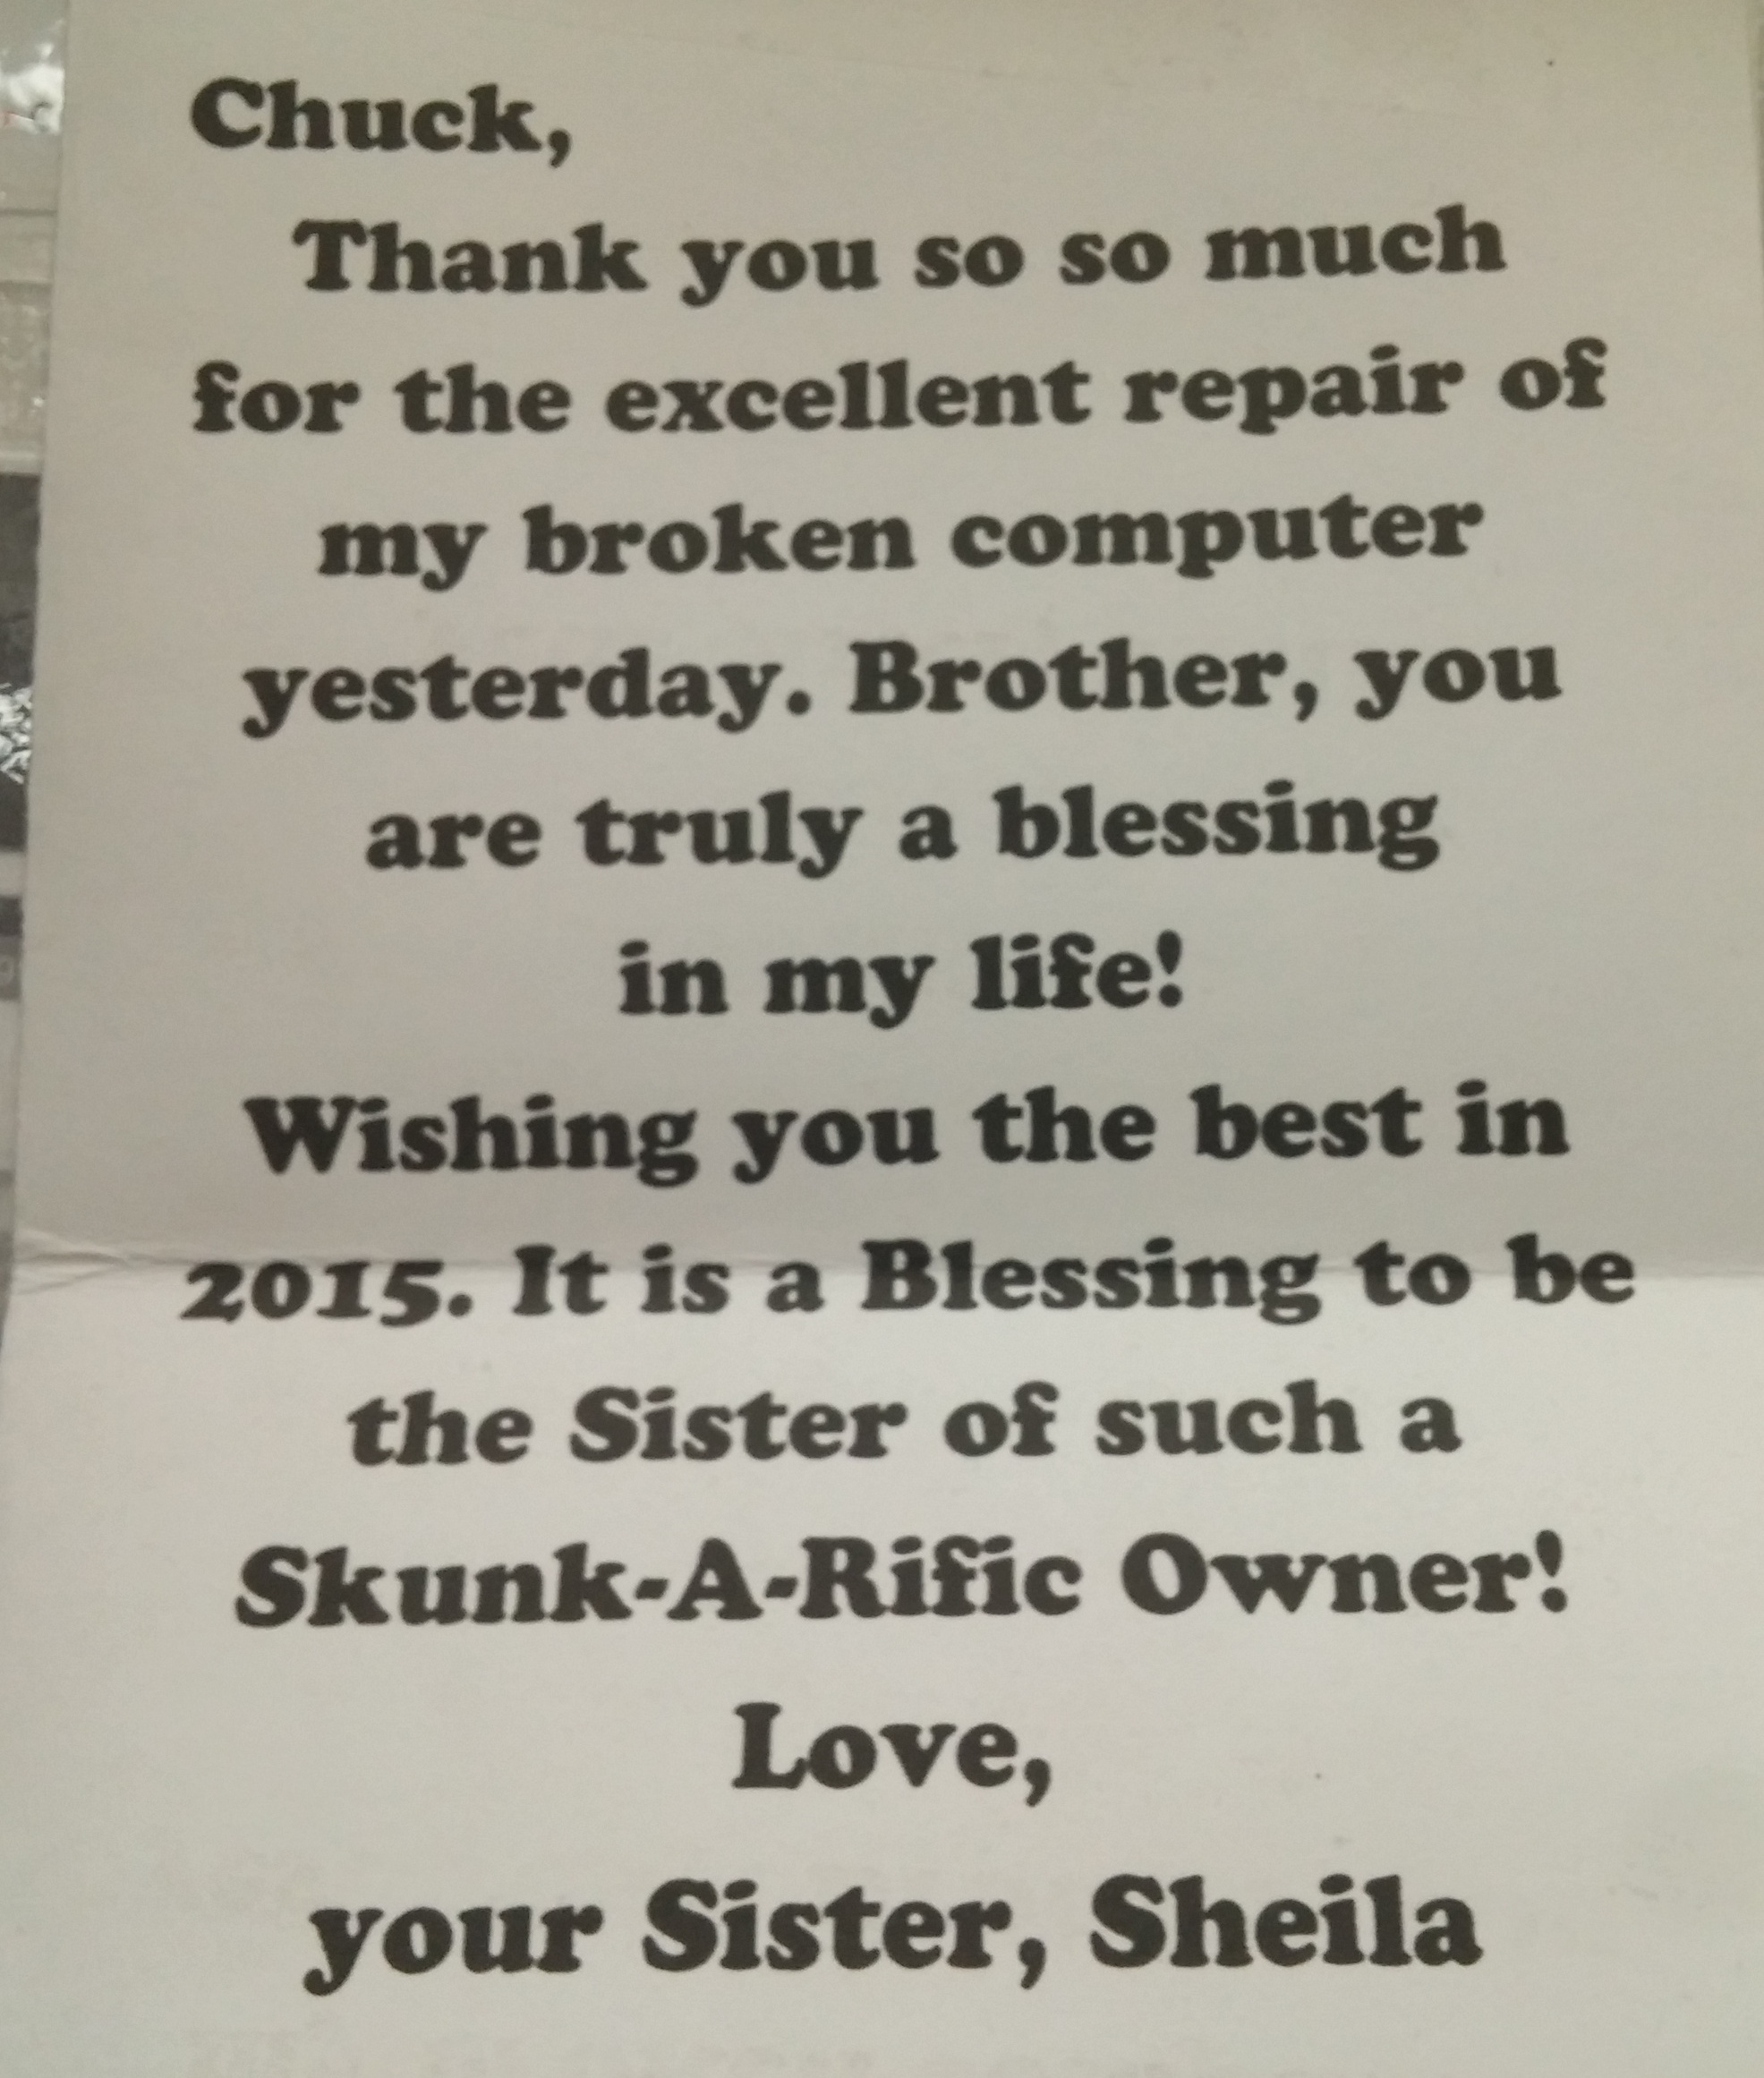 Chuck,
Thank you so so much
for the excellent repair of
my broken computer
yesterday. Brother, you
are truly a blessing
in my life!
Wishing you the best in
2015. It is a Blessing to be
the Sister of such a
Skunk-A-Rific Owner!
Love,
your Sister, Sheila